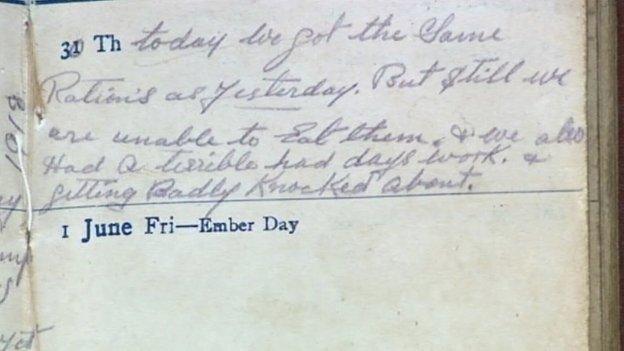 30 Th today we got the Same
Rations as Yesterday. But Still we
are unable to Eat them. & we also
Had a terrible had days work. &
getting Badly Knocked About.
1 June Fri—Ember Day